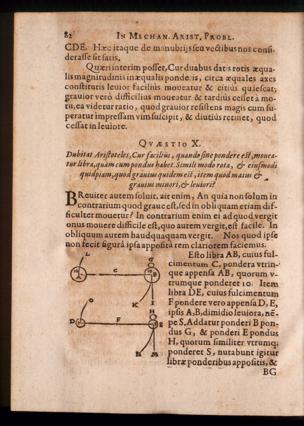 82 IN MECHAN. ARIST. PROBL.
CDE. Hæc itaque de manubrijs seu vectibus nos consi-
derasse sit satis.
Quæri interim posset, Cur duabus datis rotis æqua-
lis magnitudinis inæqualis ponderis, circa æquales axes
constitutis leuior facilius moueatur & citius quiescat;
grauior verò difficilius moueatur & tardius cesset a mo-
tu, ea videtur ratio, quod grauior resistens magis cum su-
peratur impressam vim suscipit, & diutius retinet, quod
cessat in leuiore.
QVÆSTIO X.
Dubitat Aristoteles, Cur facilius, quando sine pondere est, mouea-
tur libra, quàm cum pondus habet. Simili modo rota, & eiusmodi
quidpiam, quod grauius quidem est, item quod maius &
grauius minori, & leuiori?
BReuiter autem soluit, ait enim, An quia non solum in
contrarium quod graue est, sed in obliquum etiam dif-
ficulter mouetur? In contrarium enim ei ad quod vergit
onus mouere difficile est, quo autem vergit, est facile. In
obliquum autem haudquaquam vergit. Nos quod ipse
non fecit figurâ ipsa apposita rem clariorem faciemus.
Esto libra AB, cuius ful-
cimentum C, pondera vtrin-
que appensa AB, quorum v-
trumque ponderet 10. Item
libra DE, cuius fulcimentum
F pondere vero appensa D, E,
ipsis A, B, dimidio leuiora, nẽ-
pe 5, Addatur ponderi B pon-
dus G, & ponderi E pondus
H, quorum similiter vtrumq;
ponderet S, nutabunt igitur
libræ ponderibus appositis, &
BG
L
A
C
G
B
K
I
O
D
F
H
E
M